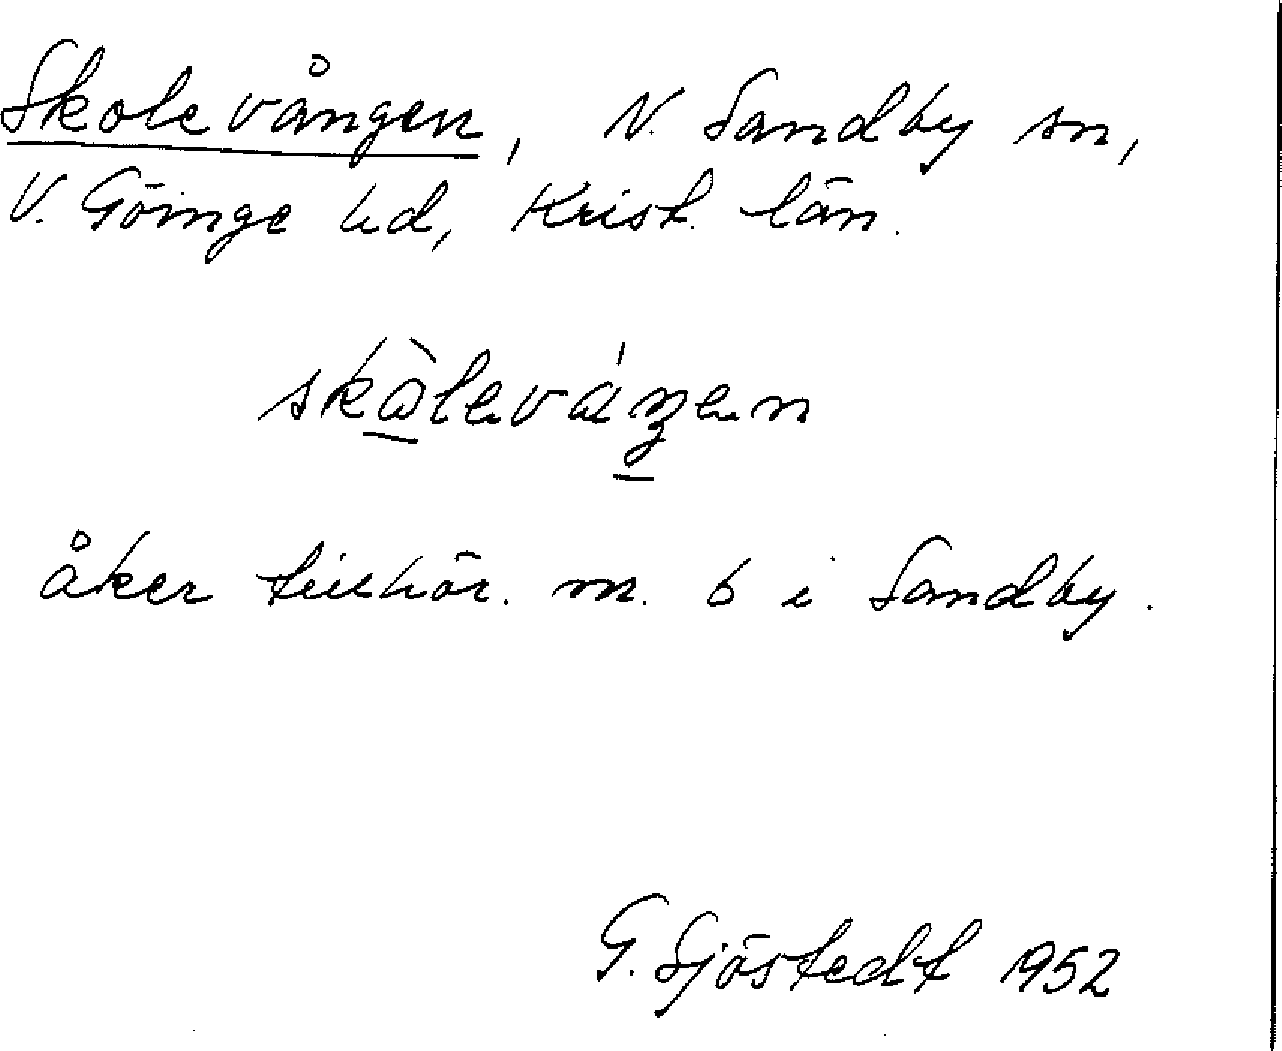 Skolevången, N. Sandby sn,
V. Göinge hd, Krist. län.
skὰleváŋen
åker tillhör. m. 6 i Sandby.
G. Sjöstedt 1952